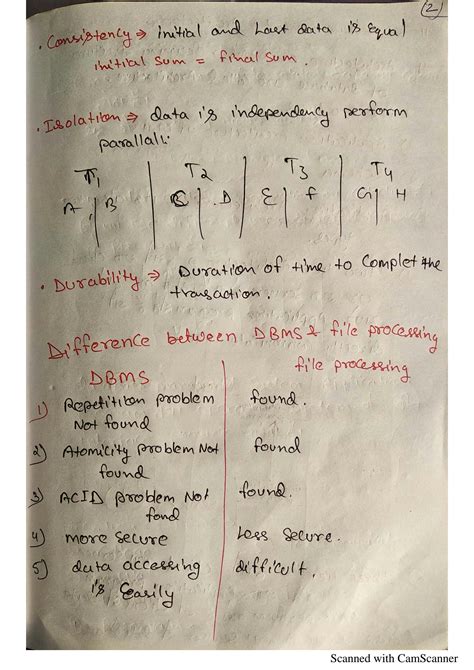 (2)
• Consistency → initial and Last data is Equal
initial sum = final sum.
• Isolation ⇒ data is independency perform
parallal:
T1 T2 T3 T4
A, B C D E F G H
• Durability ⇒ Duration of time to Complet the
transaction.
Difference between DBMS & file processing
DBMS file processing
1) Repetition problem found.
Not found
2) Atomicity problem Not found
found
3) ACID problem Not found.
fond
4) more secure Less secure.
5) data accessing difficult.
is Easily
Scanned with CamScanner